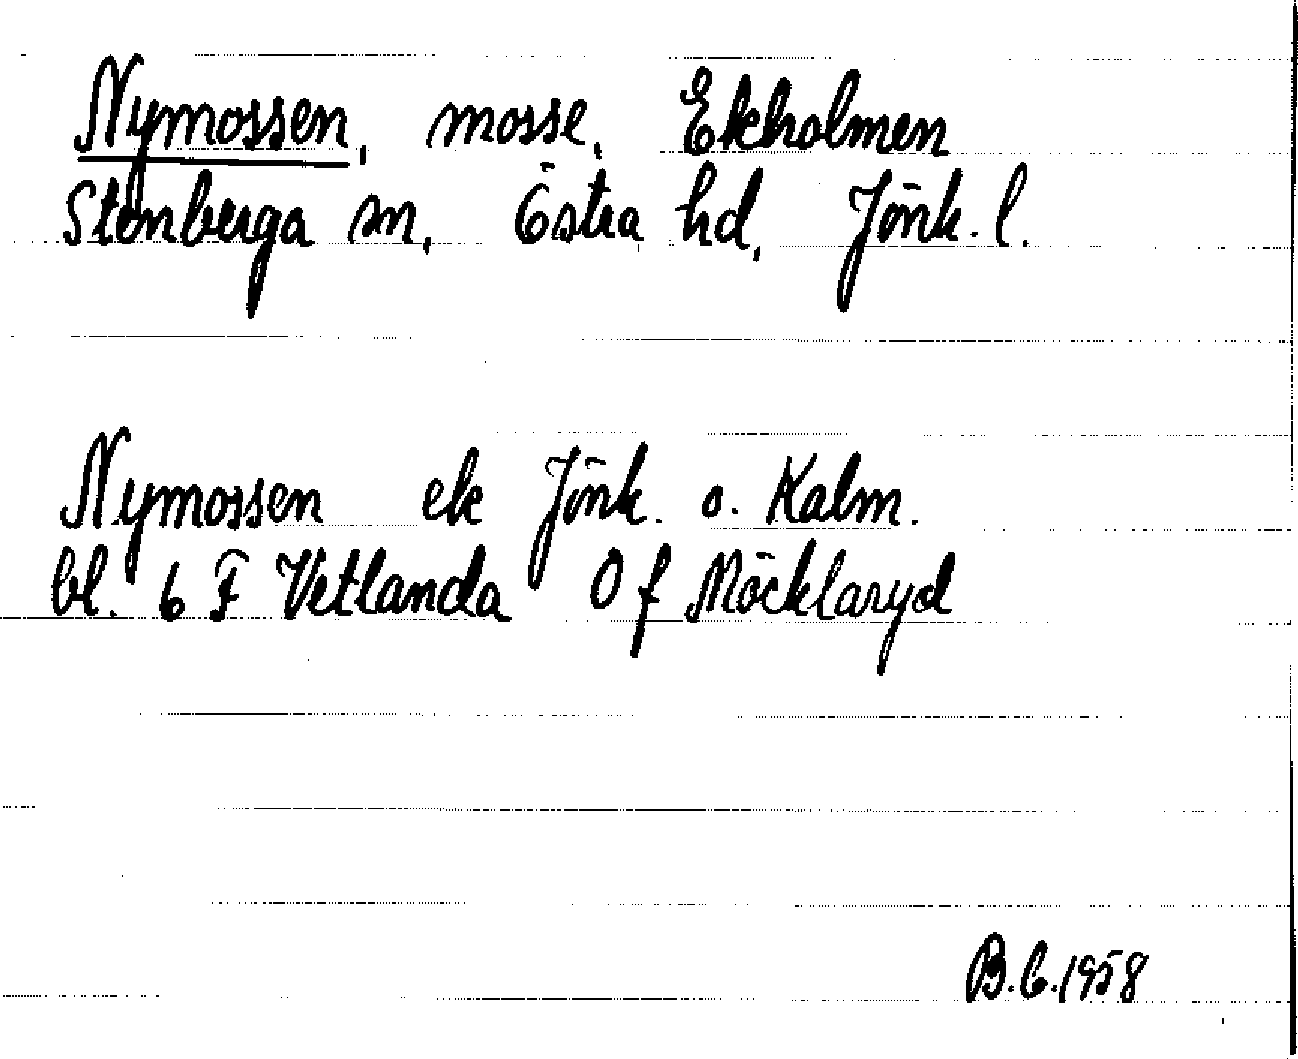 Nymossen, mosse, Ekholmen
Stenberga sn, Östra hd, Jönk. l.
Nymossen ek Jönk. o. Kalm.
bl. 6 F Vetlanda 0 f Möcklaryd
B.C. 1958